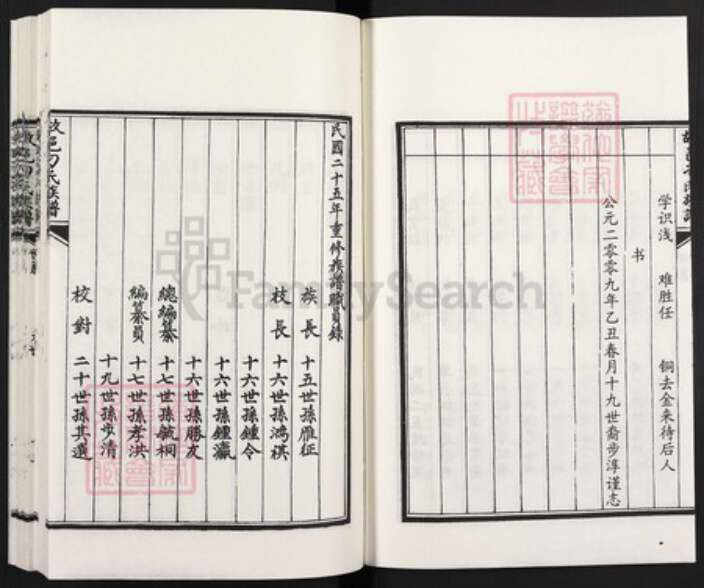 学识浅　难胜任　铜去金来待后人
书
公元二零零九年乙丑春月十九世裔步淳谨志
民國二十五年重修族譜職員錄
族長 十五世孫雁征
枝長 十六世孫鴻祺
十六世孫鍾令
十六世孫鍾瀛
十六世孫勝友
總編纂 十七世孫毓桐
編纂員 十七世孫孝洪
十九世孫步清
校對 二十世孫其選
刁氏族譜
FamilySearch